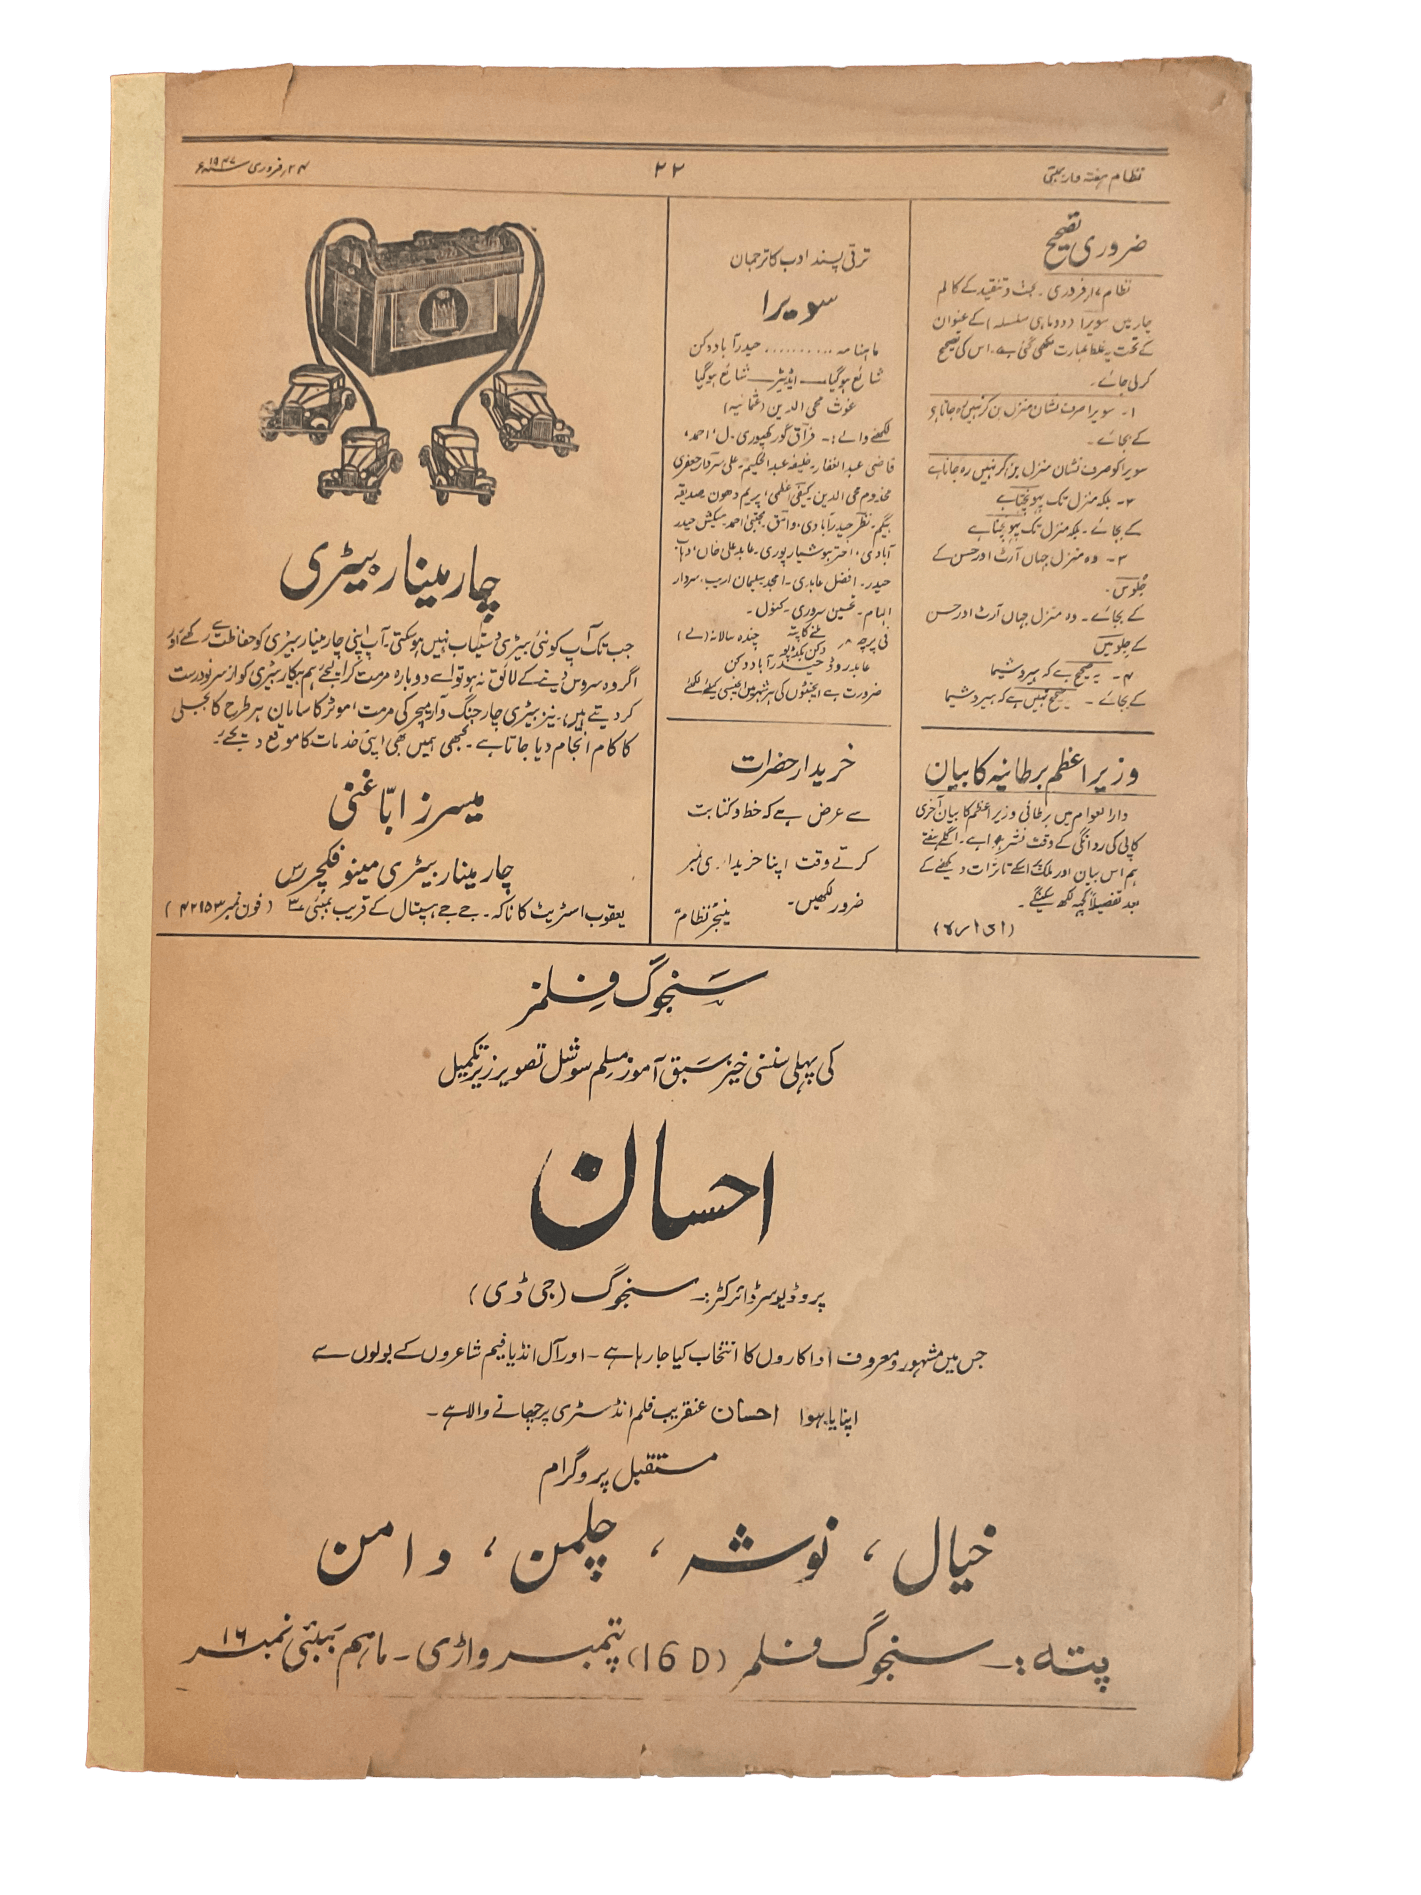 نظام ہفتہ وار بمبئی
۲۲
۲۴ر فروری ۱۹۴۷ء
ضروری تصحیح
نظام ۱۷ر فروری۔ بحث و تنقید کے کالم
چار میں سویرا (دو ماہی سلسلہ) کے عنوان
کے تحت یہ غلط عبارت لکھی گئی ہے۔ اس کی تصحیح
کرلی جائے۔
۱۔ سویرا صرف نشان منزل بن کر نہیں رہ جاتا ہے
کے بجائے۔
سویرا کو صرف نشان منزل بن کر نہیں رہ جانا ہے
۲۔ بلکہ منزل تک پہونچتا ہے
کے بجائے۔ بلکہ منزل تک پہونچنا ہے
۳۔ وہ منزل جہاں آرٹ اور حسن کے
جُلوس۔
کے بجائے۔ وہ منزل جہاں آرٹ اور حسن
کے جِلو میں
۴۔ یہ صحیح ہے کہ ہیروشیما
کے بجائے۔ صحیح نہیں ہے کہ ہیروشیما
وزیر اعظم برطانیہ کا بیان
دار العوام میں برطانی وزیر اعظم کا بیان آخری
کاپی کی روانگی کے وقت نشر ہوا ہے۔ اگلے ہفتے
ہم اس بیان اور ملک پر اسکے تاثرات دیکھنے کے
بعد تفصیلاً کچھ لکھ سکینگے۔
(ادارہ)
ترقی پسند ادب کا ترجمان
سویرا
ماہنامہ .......... حیدرآباد دکن
شائع ہوگیا — ایڈیٹر — شائع ہوگیا
غوث محی الدین (عثمانیہ)
لکھنے والے:۔ فراق گورکھپوری۔ ل، احمد،
قاضی عبدالغفار۔ خلیفہ عبدالحکیم۔ علی سردار جعفری
مخدوم محی الدین۔ کیفی اعظمی، پریم دھون۔ صدیقہ
بیگم۔ نظر حیدرآبادی۔ وامق۔ مجتبیٰ احمد۔ میکش حیدر
آبادی۔ اختر ہوشیارپوری۔ عابد علی خاں، وہاب
حیدر۔ افضل عابدی۔ امجد۔ سلیمان اریب۔ سردار
الہام۔ تحسین سروری۔ کنول۔
فی پرچہ ۸ر ملنے کا پتہ چندہ سالانہ
دکن بکڈپو
عابد روڈ حیدرآباد دکن
ضرورت ہے ایجنٹوں کی ہر شہر میں ایجنسی کیلئے لکھئے
خریدار حضرات
سے عرض ہے کہ خط و کتابت
کرتے وقت اپنا خریداری نمبر
ضرور لکھیں۔
منیجر نظام
چار مینار بیٹری
جب تک آپ کو نئی بیٹری دستیاب نہیں ہو سکتی۔ آپ اپنی چار مینار بیٹری کو حفاظت سے رکھئے اور
اگر وہ سروس دینے کے لائق نہ ہو تو اسے دوبارہ مرمت کرا لیجئے ہم بیکار بیٹری کو از سر نو درست
کر دیتے ہیں، نیز بیٹری چارجنگ و آرمیچر کی مرمت، موٹر کا سامان ہر طرح کا بجلی
کا کام انجام دیا جاتا ہے۔ کبھی ہمیں بھی اپنی خدمات کا موقع دیجئے۔
میسرز ابّا غنی
چار مینار بیٹری مینوفکچررس
یعقوب اسٹریٹ کا ناکہ۔ جے جے ہسپتال کے قریب بمبئی ۳ (فون نمبر ۴۲۱۵۳)
سَنجوگ فِلمز
کی پہلی سنسنی خیز سَبق آموز مسلم سوشل تصویر زیر تکمیل
احسان
پروڈیوسر ڈائرکٹر:۔ سنجوگ (جی ڈی)
جس میں مشہور و معروف اداکاروں کا انتخاب کیا جا رہا ہے۔ اور آل انڈیا فیم شاعروں کے بولوں سے
اپنایا ہوا احسان عنقریب فلم انڈسٹری پر چھانے والا ہے۔
مستقبل پروگرام
خیال، نوشہ، چلمن، دامن
پتہ:۔ سنجوگ فلمز (16 D) پتمبر واڑی۔ ماہم بمبئی نمبر ۱۶